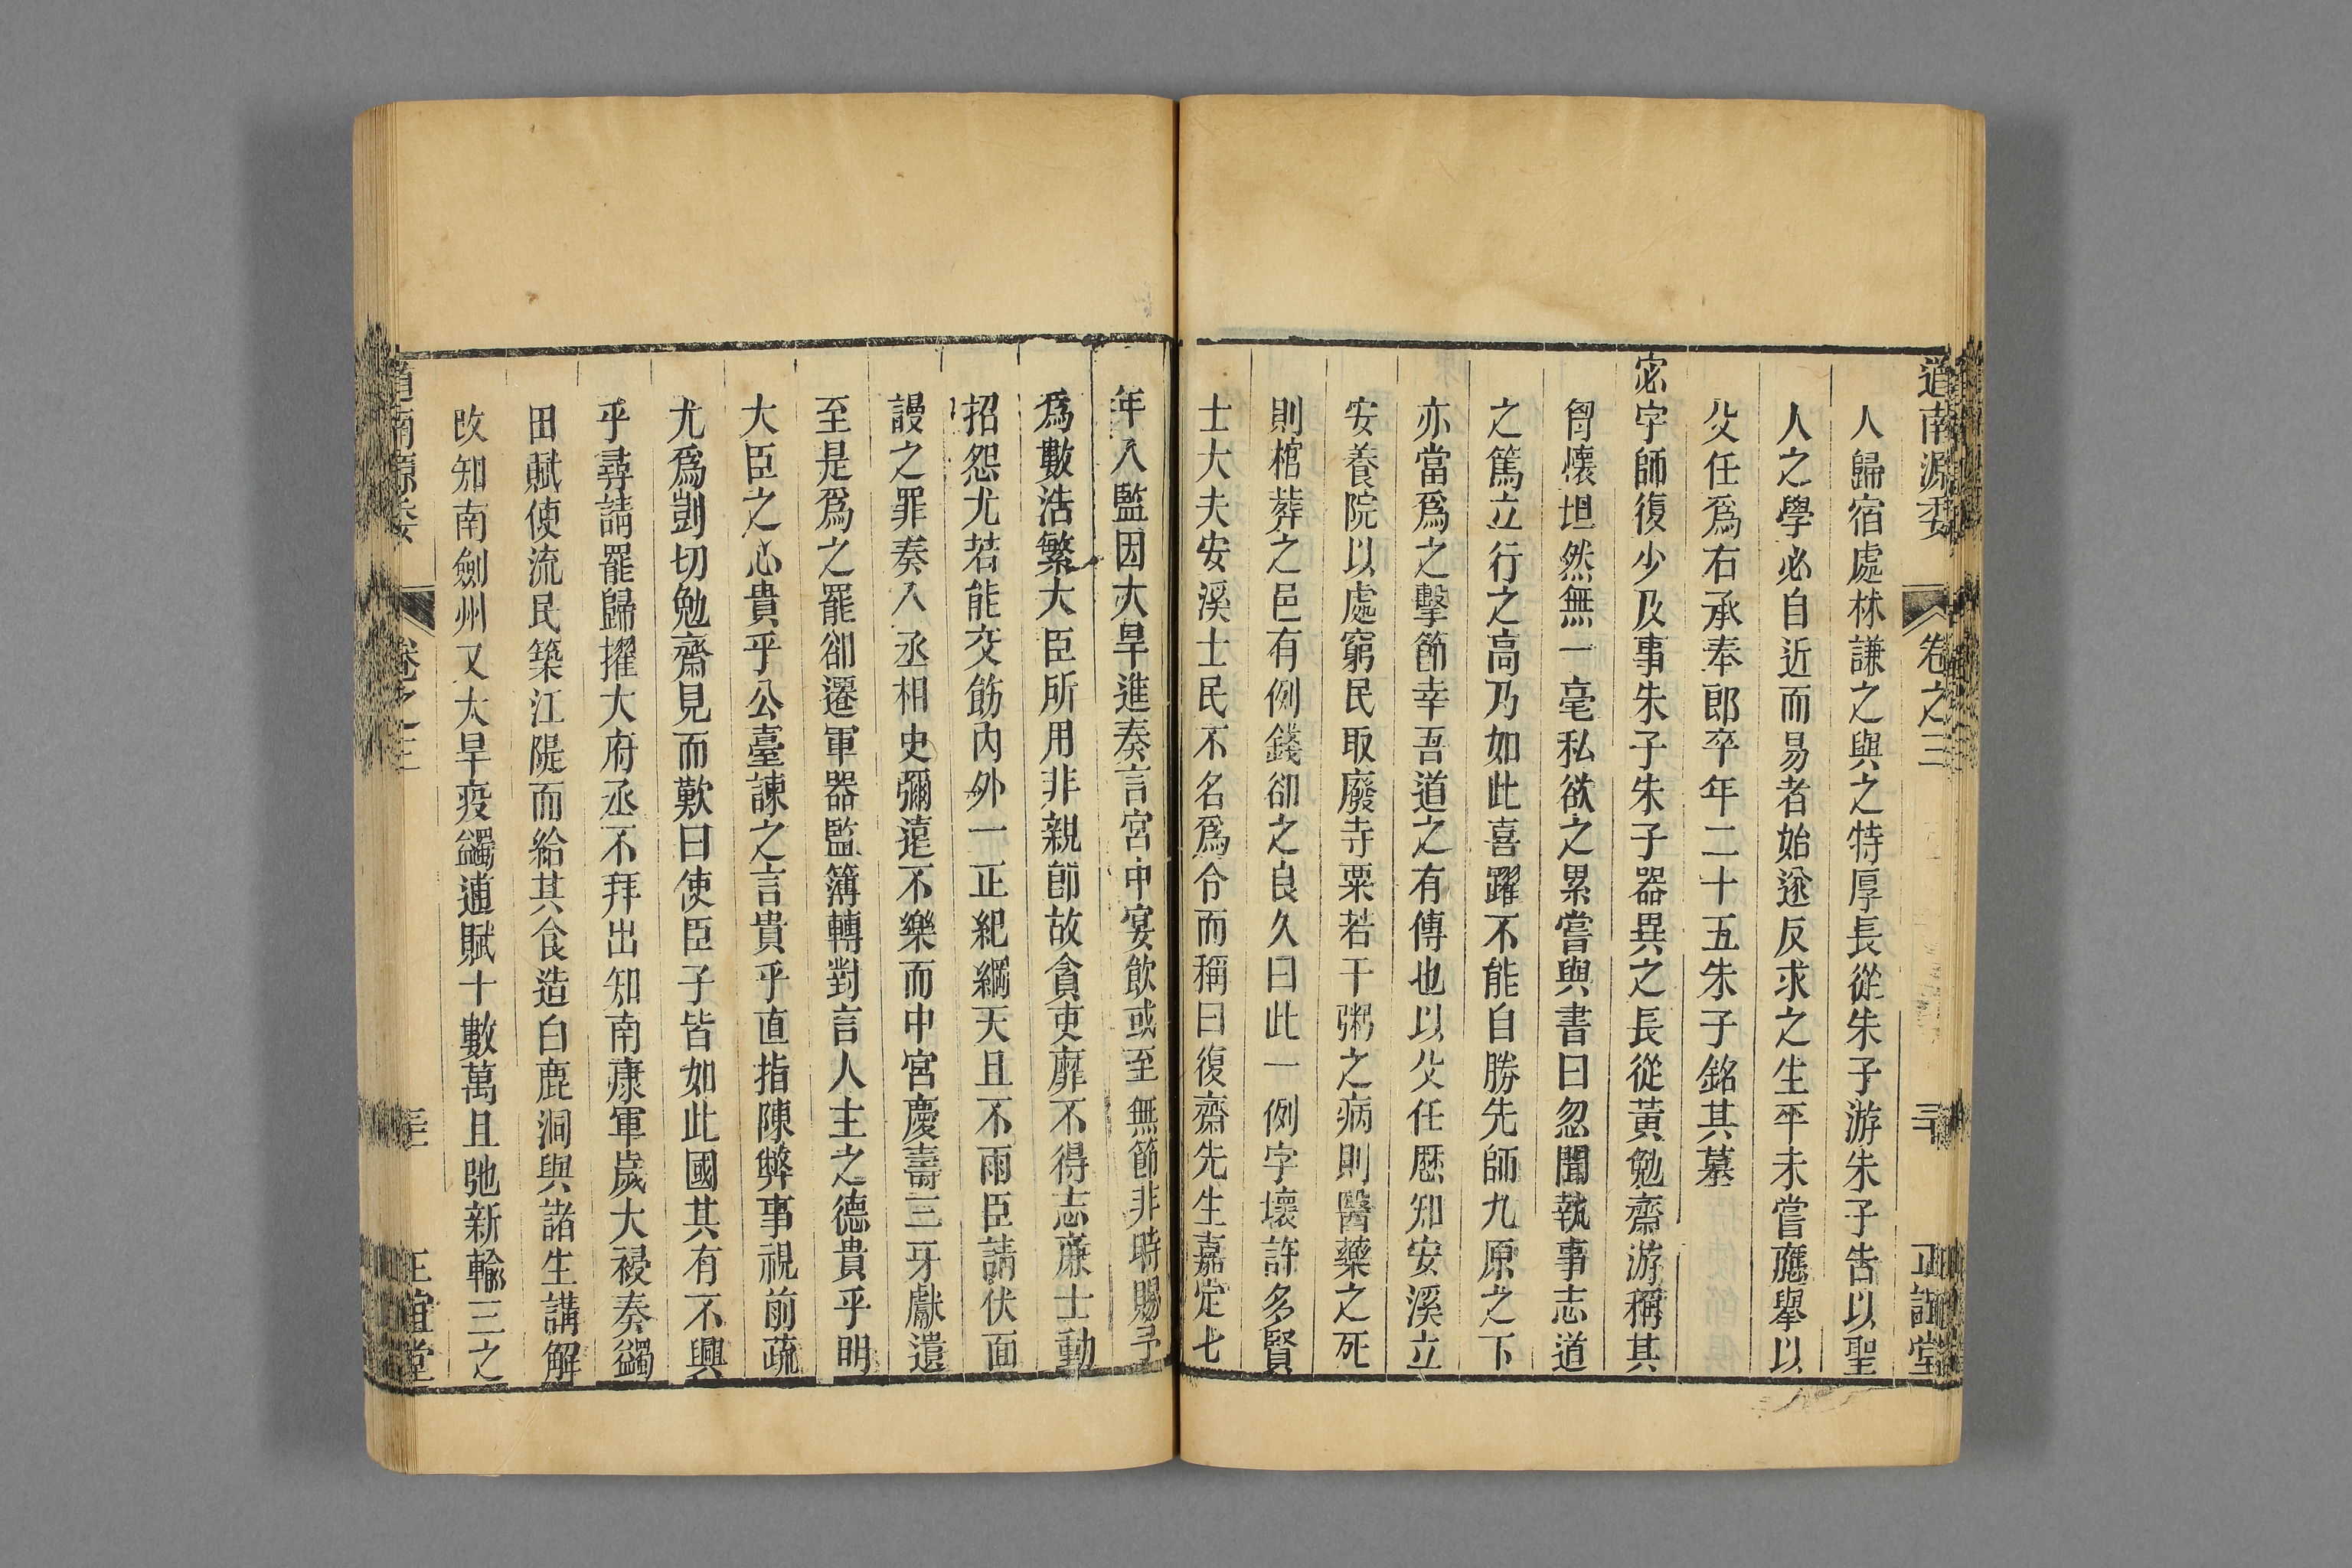 道南源委 卷之三 三十 正誼堂
人歸宿處林謙之與之特厚長從朱子游朱子告以聖
人之學必自近而易者始遂反求之生平未嘗應舉以
父任爲右承奉郎卒年二十五朱子銘其墓
宓字師復少及事朱子朱子器異之長從黃勉齋游稱其
胷懷坦然無一毫私欲之累嘗與書曰忽聞執事志道
之篤立行之高乃如此喜躍不能自勝先師九原之下
亦當爲之擊節幸吾道之有傳也以父任歷知安溪立
安養院以處窮民取廢寺粟若干粥之病則醫藥之死
則棺葬之邑有例錢卻之良久曰此一例字壞許多賢
士大夫安溪士民不名爲令而稱曰復齋先生嘉定七
年入監因大旱進奏言宮中宴飲或至無節非時賜予
爲數浩繁大臣所用非親卽故貪吏靡不得志廉士動
招怨尤若能交飭內外一正紀綱天且不雨臣請伏面
謾之罪奏入丞相史彌遠不樂而中宮慶壽三牙獻遺
至是爲之罷卻遷軍器監簿轉對言人主之德貴乎明
大臣之心貴乎公臺諫之言貴乎直指陳弊事視前疏
尤爲剴切勉齋見而歎曰使臣子皆如此國其有不興
乎尋請罷歸擢大府丞不拜出知南康軍歲大祲奏蠲
田賦使流民築江隄而給其食造白鹿洞與諸生講解
改知南劍州又大旱疫蠲逋賦十數萬且弛新輸三之
道南源委 卷之三 正誼堂